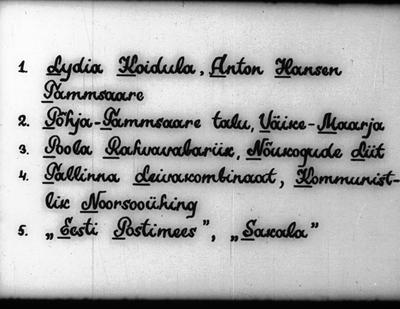 1. Lydia Koidula, Anton Hansen
Tammsaare
2. Põhja-Tammsaare talu, Väike-Maarja
3. Poola Rahvavabariik, Nõukogude Liit
4. Tallinna Leivakombinaat, Kommunist-
lik Noorsooühing
5. „Eesti Postimees”, „Sakala”